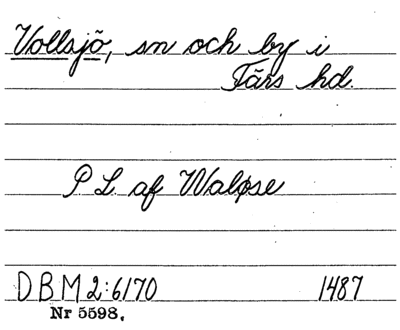 Vollsjö, sn och by i
Färs hd.
P L af Waløse
DBM 2:6170 1487
Nr 5598.